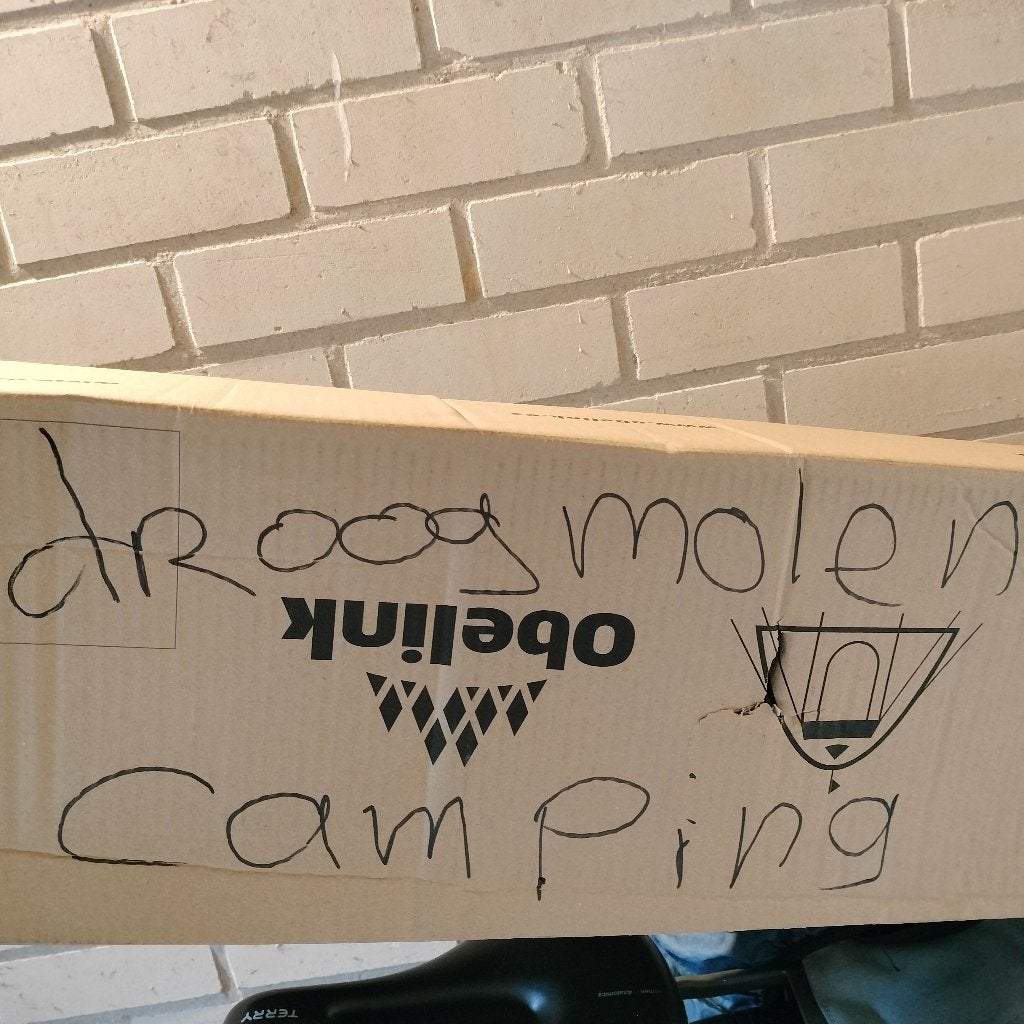 dRoogmolen
obelink
camping
TERRY